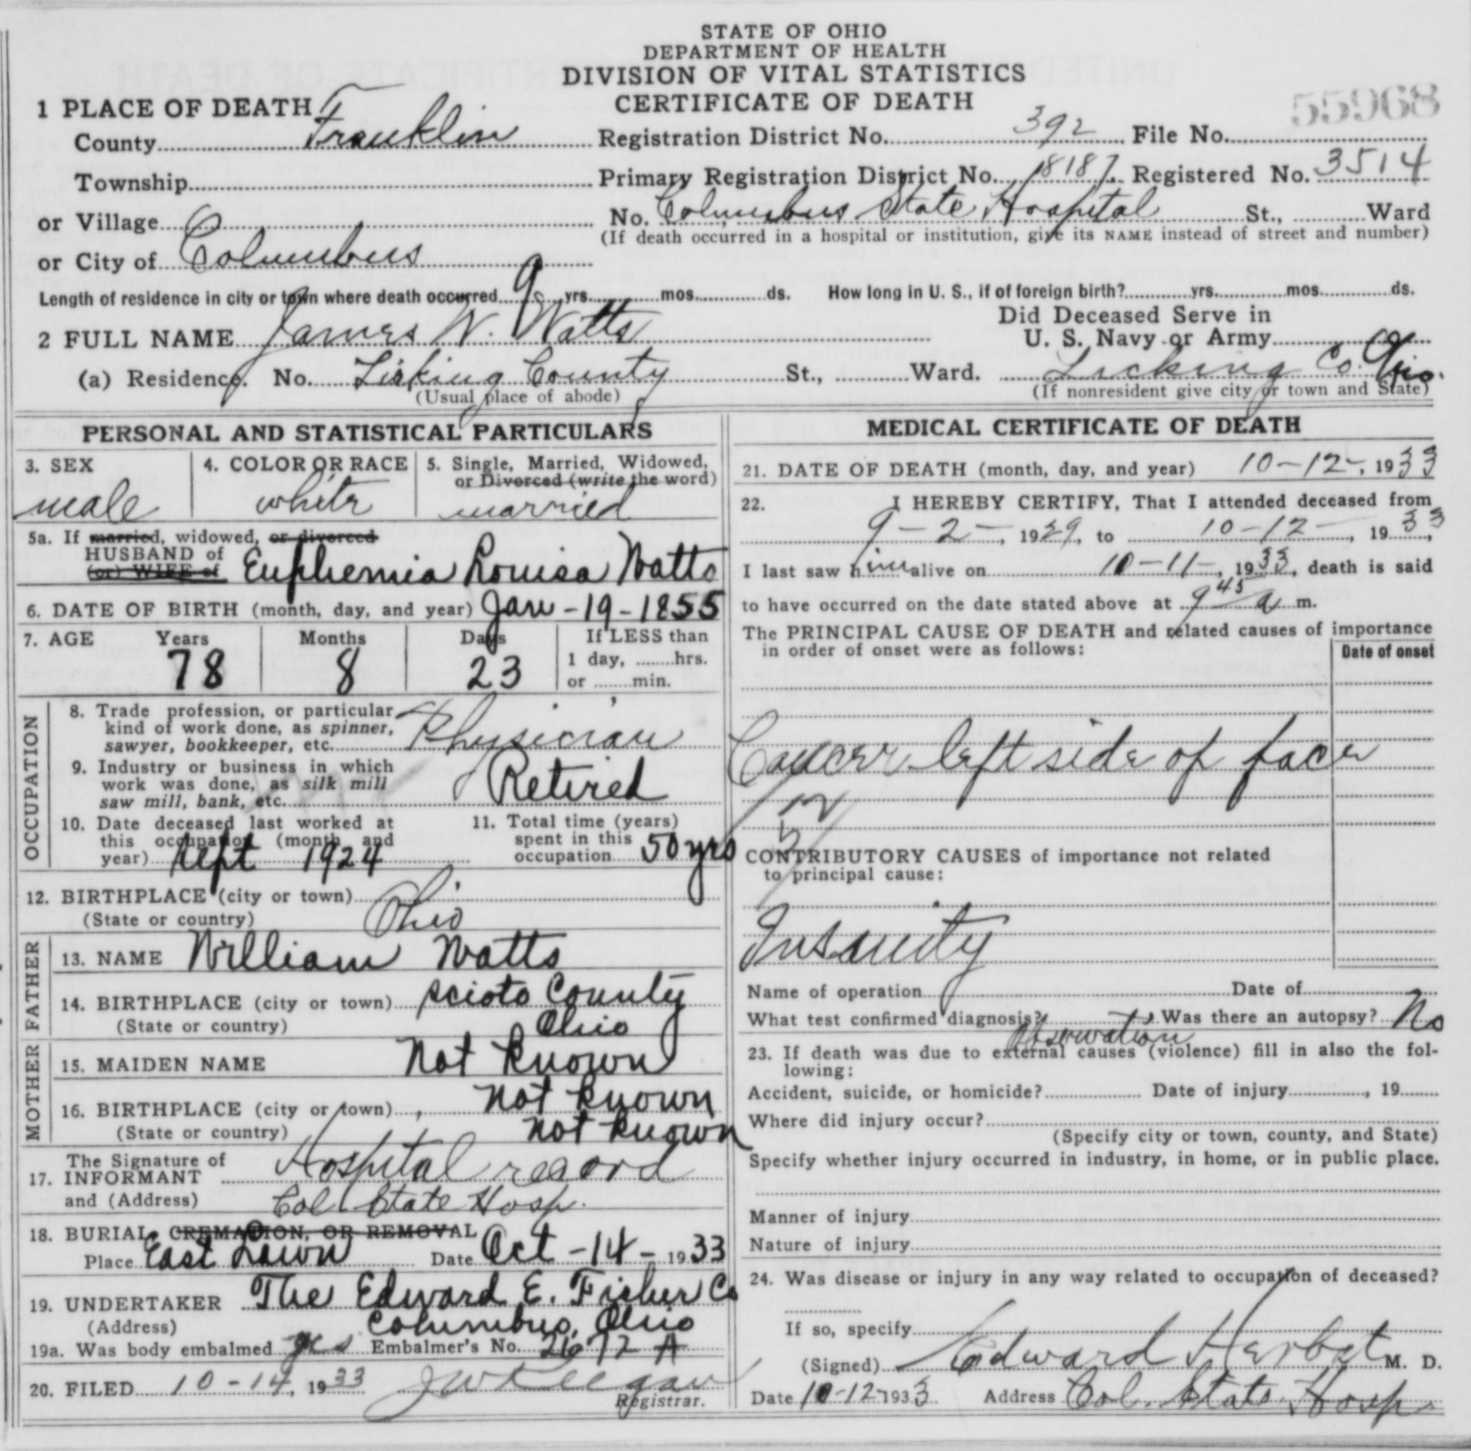 STATE OF OHIO
DEPARTMENT OF HEALTH
DIVISION OF VITAL STATISTICS
CERTIFICATE OF DEATH
55968
1 PLACE OF DEATH
County Franklin Registration District No. 392 File No.
Township Primary Registration District No. 8187 Registered No. 3514
or Village No. Columbus State Hospital St., Ward
(If death occurred in a hospital or institution, give its NAME instead of street and number)
or City of Columbus
Length of residence in city or town where death occurred 9 yrs. mos. ds. How long in U. S., if of foreign birth? yrs. mos. ds.
2 FULL NAME James W. Watts Did Deceased Serve in U. S. Navy or Army
(a) Residence. No. Licking County St., Ward. Licking Co. Ohio.
(Usual place of abode) (If nonresident give city or town and State)
PERSONAL AND STATISTICAL PARTICULARS
3. SEX 4. COLOR OR RACE 5. Single, Married, Widowed, or Divorced (write the word)
male white married
5a. If married, widowed, or divorced
HUSBAND of
(or) WIFE of Euphemia Louisa Watts
6. DATE OF BIRTH (month, day, and year) Jan - 19 - 1855
7. AGE Years Months Days If LESS than
78 8 23 1 day, hrs.
or min.
OCCUPATION
8. Trade profession, or particular
kind of work done, as spinner,
sawyer, bookkeeper, etc. Physician
9. Industry or business in which
work was done, as silk mill
saw mill, bank, etc. Retired
10. Date deceased last worked at
this occupation (month and
year) Sept 1924
11. Total time (years)
spent in this
occupation 50 yrs
12. BIRTHPLACE (city or town)
(State or country) Ohio
FATHER
13. NAME William Watts
14. BIRTHPLACE (city or town) Scioto County
(State or country) Ohio
MOTHER
15. MAIDEN NAME Not Known
16. BIRTHPLACE (city or town) Not Known
(State or country) Not Known
17. The Signature of
INFORMANT Hospital record
and (Address) Col. State Hosp.
18. BURIAL, CREMATION, OR REMOVAL
Place East Lawn Date Oct - 14 - 1933
19. UNDERTAKER The Edward E. Fisher Co
(Address) Columbus, Ohio
19a. Was body embalmed yes Embalmer's No. 2672 A
20. FILED 10 - 14, 1933 J W Keegan
Registrar.
MEDICAL CERTIFICATE OF DEATH
21. DATE OF DEATH (month, day, and year) 10 - 12 -, 1933
22. I HEREBY CERTIFY, That I attended deceased from
9 - 2 -, 1929, to 10 - 12 -, 1933,
I last saw him alive on 10 - 11 -, 1933, death is said
to have occurred on the date stated above at 9 45 a m.
The PRINCIPAL CAUSE OF DEATH and related causes of importance
in order of onset were as follows: Date of onset
Cancer left side of face
CONTRIBUTORY CAUSES of importance not related
to principal cause:
Insanity
Name of operation Date of
What test confirmed diagnosis? Observation Was there an autopsy? No
23. If death was due to external causes (violence) fill in also the fol-
lowing:
Accident, suicide, or homicide? Date of injury, 19
Where did injury occur?
(Specify city or town, county, and State)
Specify whether injury occurred in industry, in home, or in public place.
Manner of injury
Nature of injury
24. Was disease or injury in any way related to occupation of deceased?
If so, specify
(Signed) Edward Herbst M. D.
Date 10-12-1933 Address Col. State Hosp.